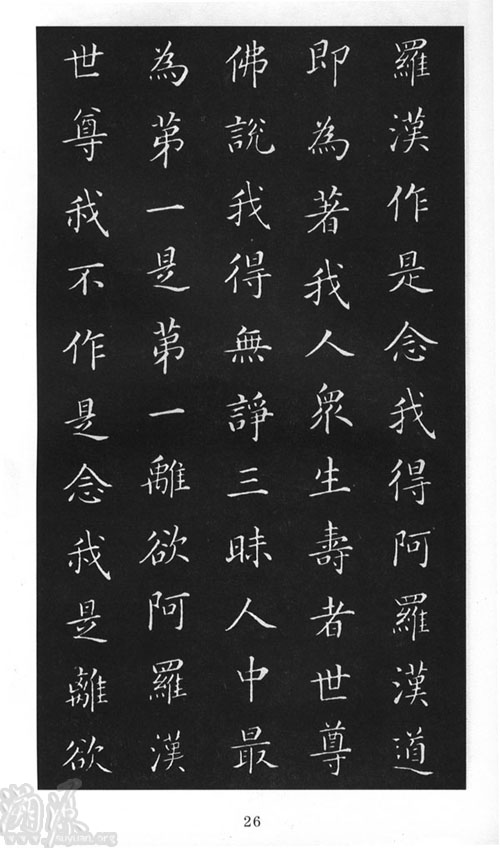 羅漢作是念我得阿羅漢道
即為著我人眾生壽者世尊
佛說我得無諍三昧人中最
為第一是第一離欲阿羅漢
世尊我不作是念我是離欲
26
溯源
suyuan.org